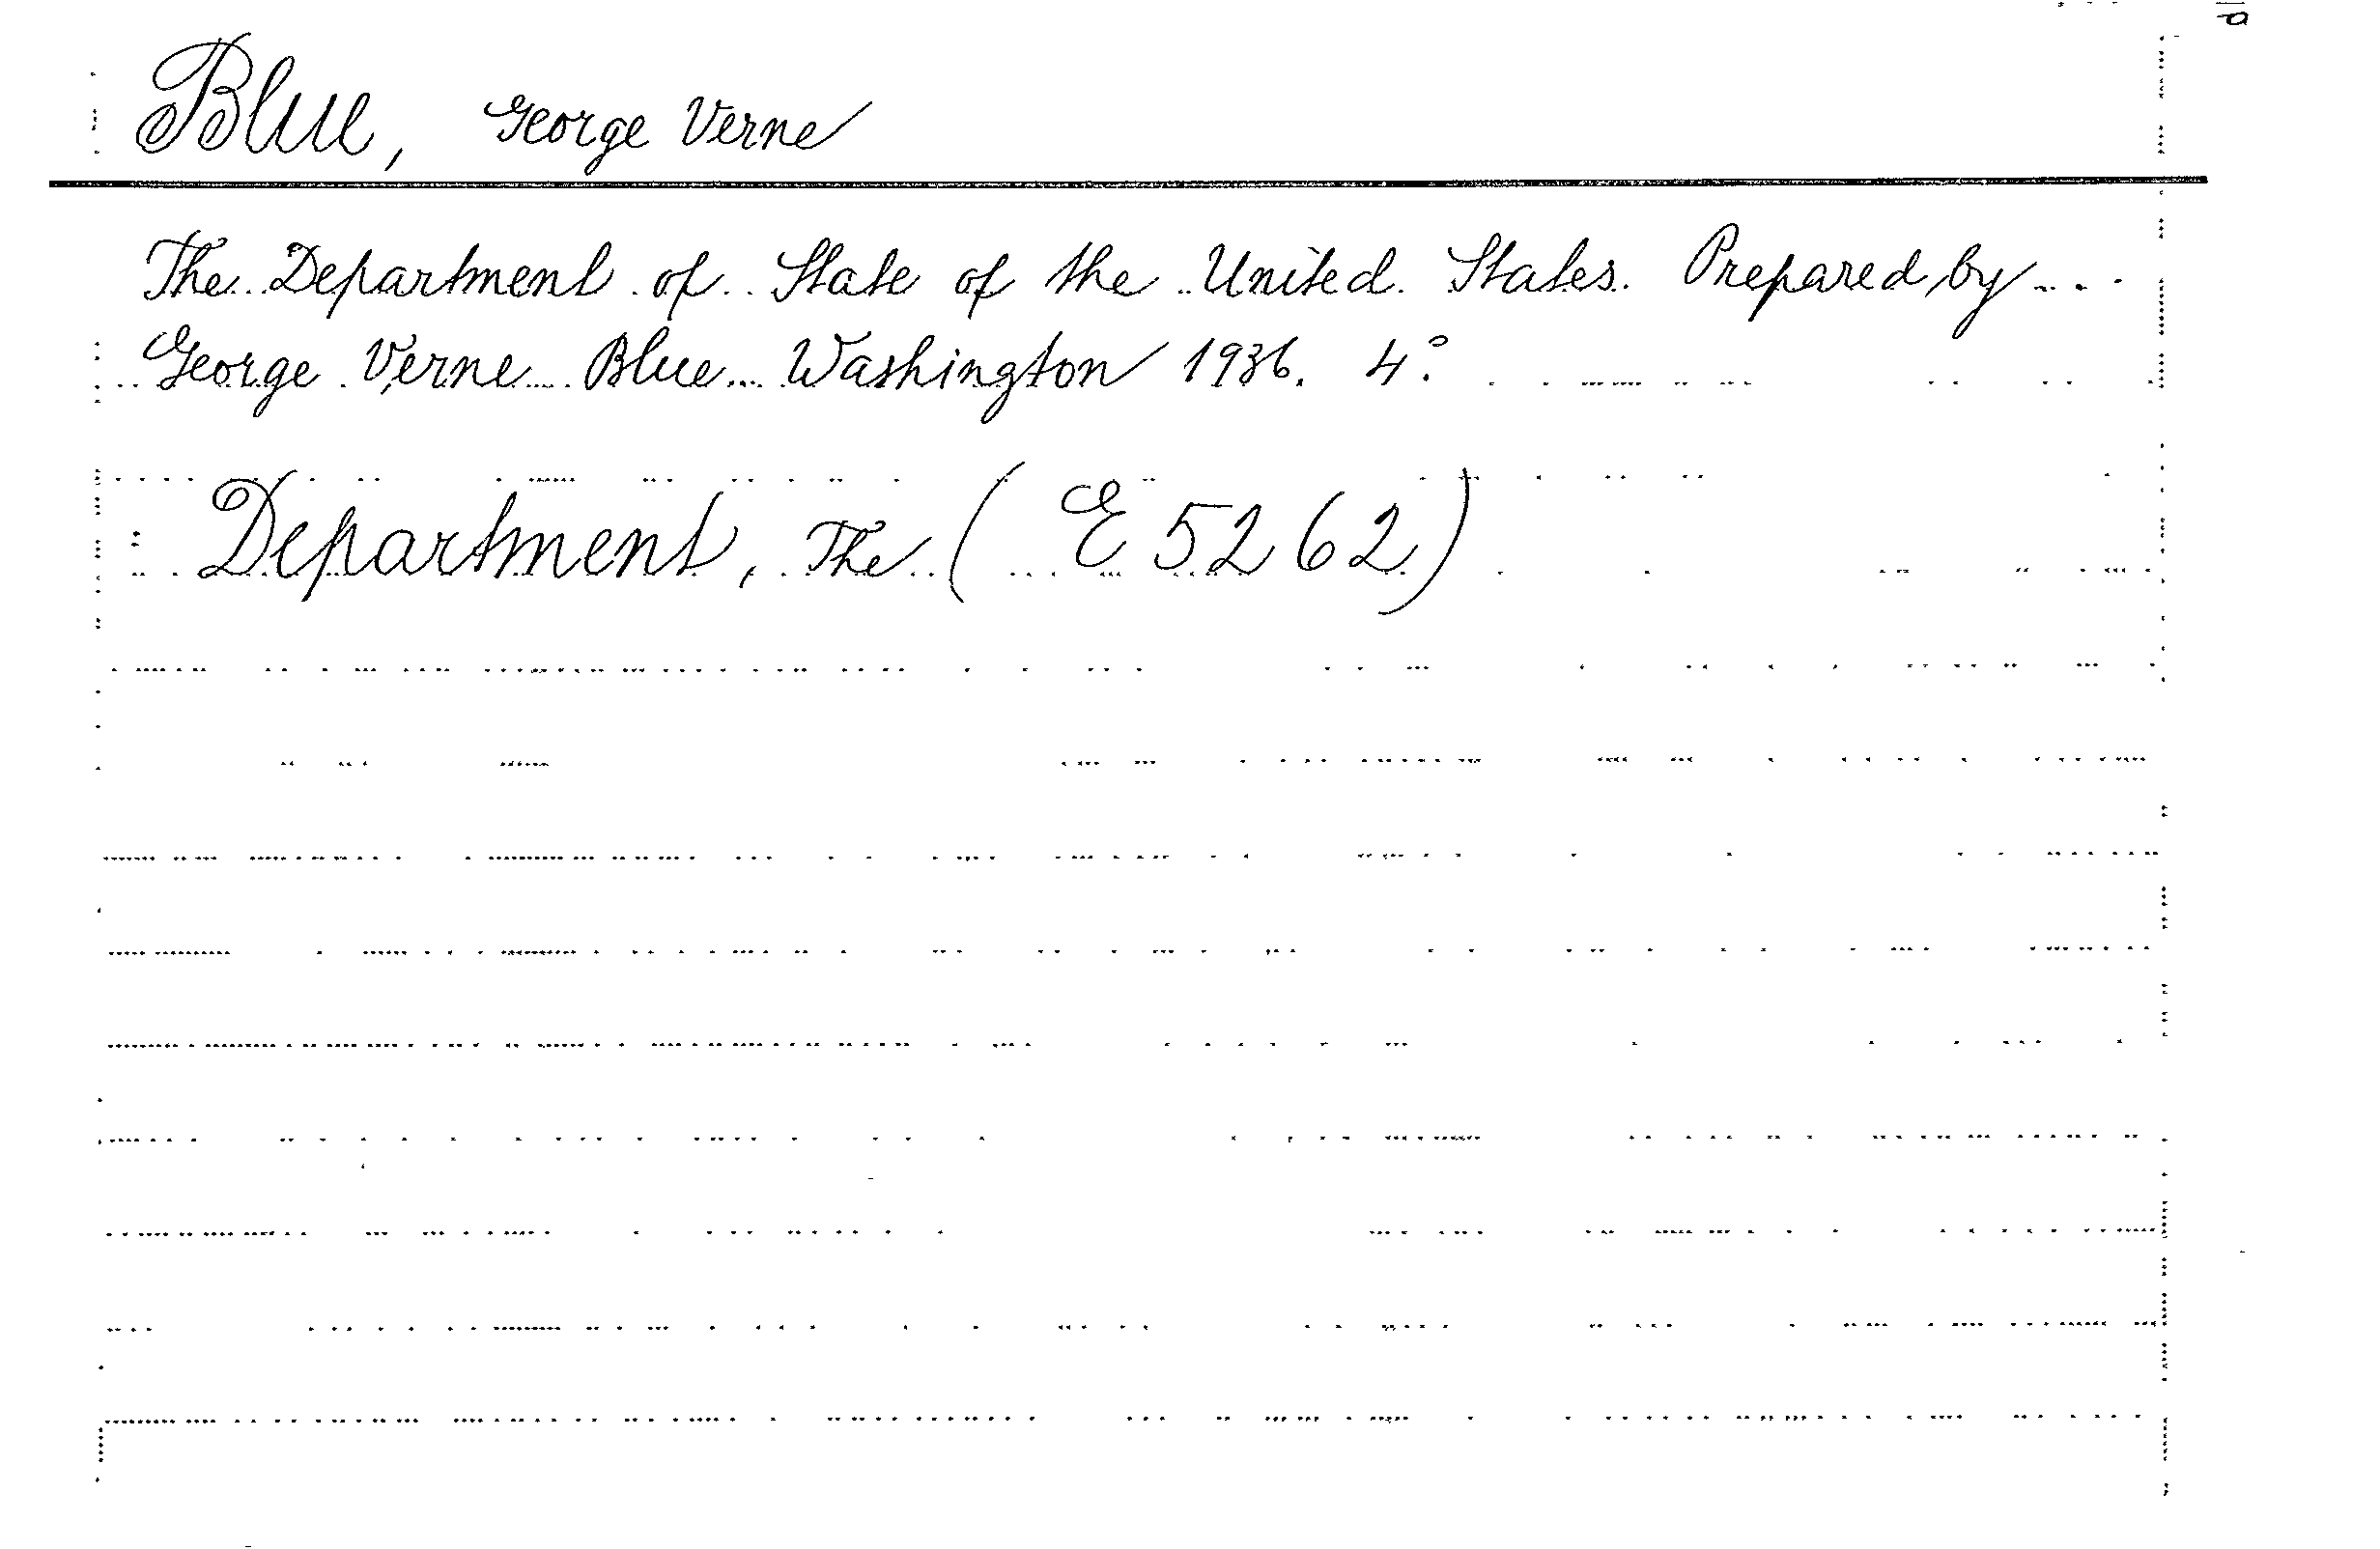 Blue, George Verne
The Department of State of the United States. Prepared by...
George Verne Blue... Washington 1936. 4°.
Department, The (E 5262)